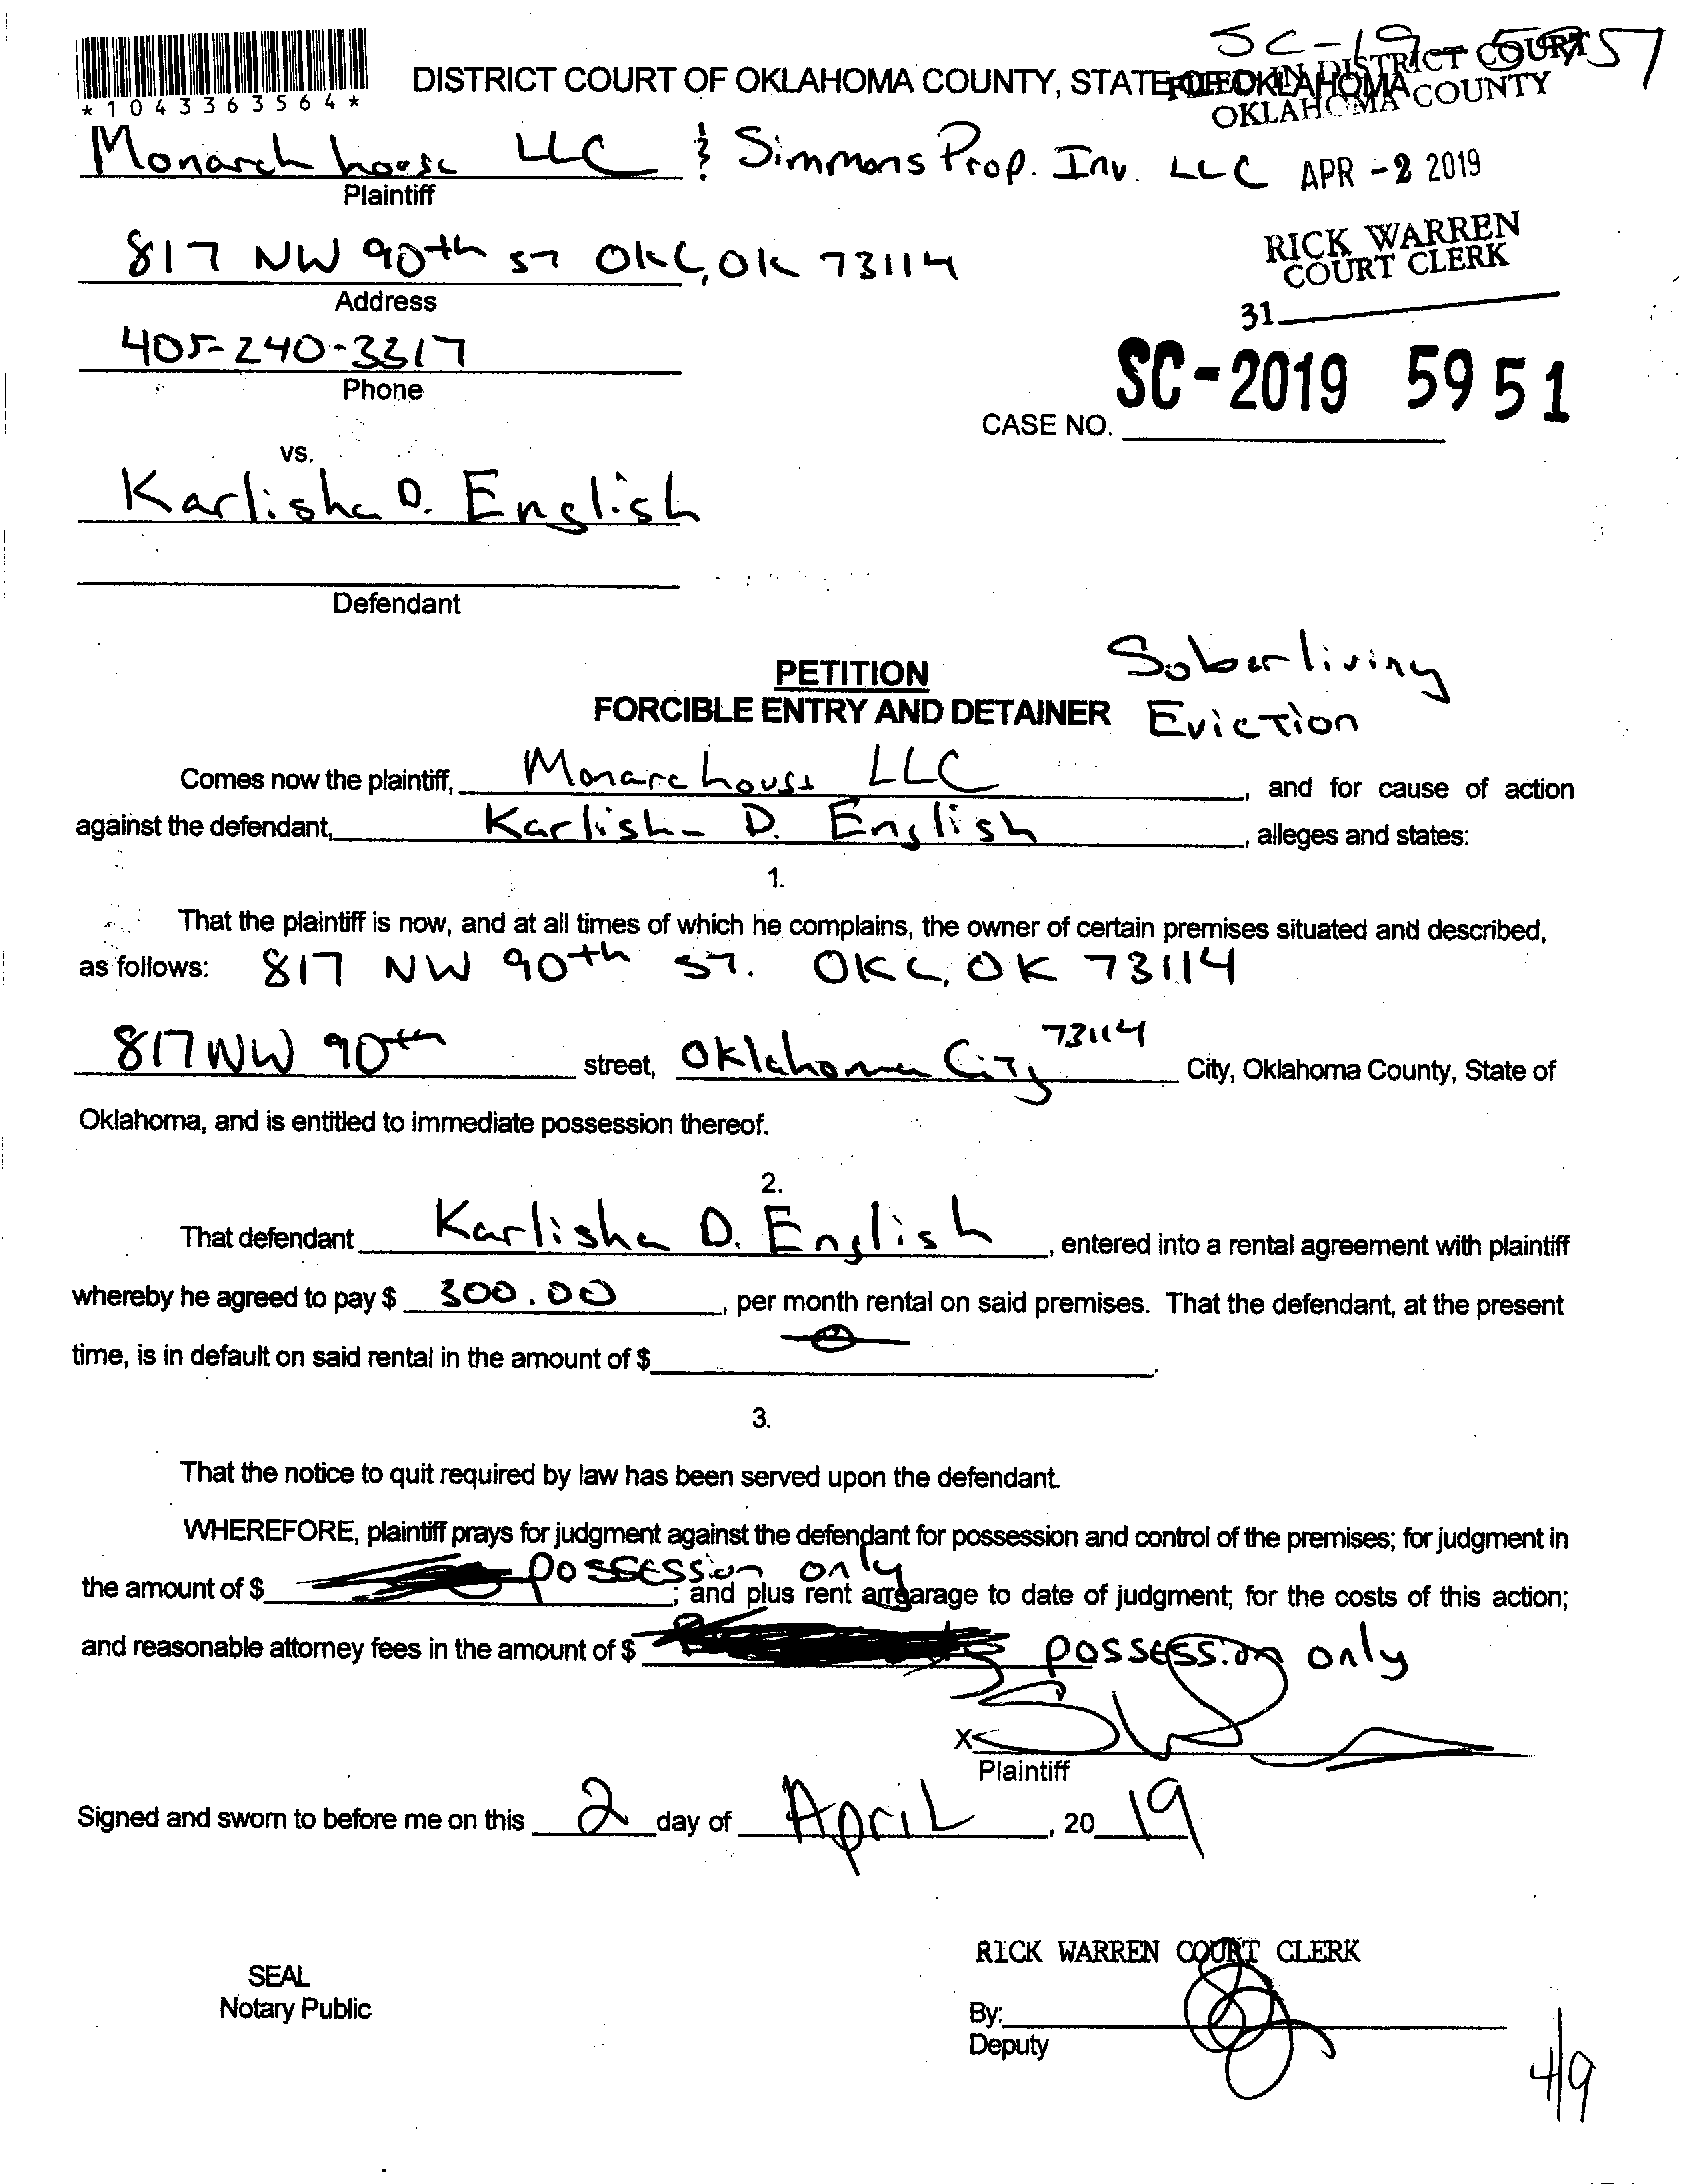 SC-19-5951
DISTRICT COURT OF OKLAHOMA COUNTY, STATE OF OKLAHOMA
FILED IN DISTRICT COURT
OKLAHOMA COUNTY
*1043363564*
Monarch house LLC & Simmons Prop. Inv. LLC
APR -2 2019
Plaintiff
RICK WARREN
COURT CLERK
817 NW 90th ST OKC, OK 73114
Address
31
405-240-3317
Phone
SC-2019 5951
CASE NO.
vs.
Karlisha D. English
Defendant
PETITION
FORCIBLE ENTRY AND DETAINER
Soberliving
Eviction
Comes now the plaintiff, Monarc house LLC, and for cause of action
against the defendant, Karlisha D. English, alleges and states:
1.
That the plaintiff is now, and at all times of which he complains, the owner of certain premises situated and described,
as follows: 817 NW 90th ST. OKC, OK 73114
817 NW 90th street, Oklahoma City 73114 City, Oklahoma County, State of
Oklahoma, and is entitled to immediate possession thereof.
2.
That defendant Karlisha D. English, entered into a rental agreement with plaintiff
whereby he agreed to pay $ 300.00, per month rental on said premises. That the defendant, at the present
time, is in default on said rental in the amount of $ 0.
3.
That the notice to quit required by law has been served upon the defendant.
WHEREFORE, plaintiff prays for judgment against the defendant for possession and control of the premises; for judgment in
the amount of $ possession only; and plus rent arrearage to date of judgment; for the costs of this action;
and reasonable attorney fees in the amount of $ possession only
X
Plaintiff
Signed and sworn to before me on this 2 day of April, 20 19
RICK WARREN COURT CLERK
SEAL
Notary Public
By:
Deputy
4/9